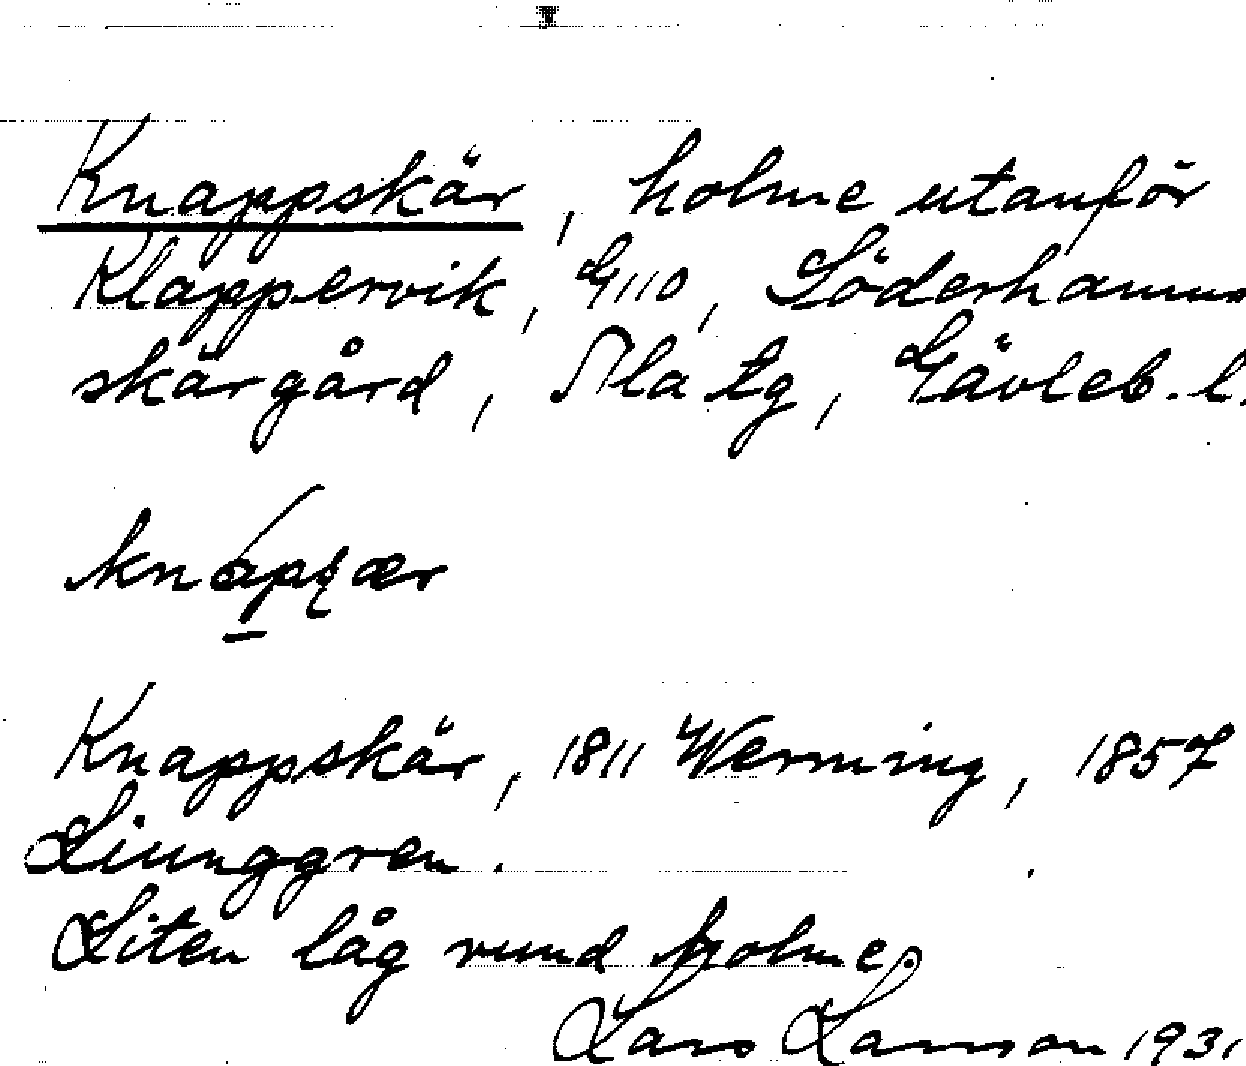 Knappskär, holme utanför
Klappervik, G110, Söderhamns
skärgård, Ala tg, Gävleb. l.
Knappskär, 1811 Werming, 1857
Ljunggren.
Liten låg rund holme.
Lars Larsson 1931